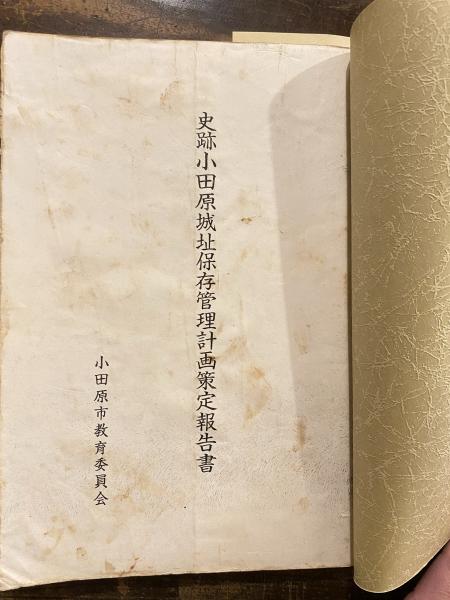 史跡小田原城址保存管理計画策定報告書
小田原市教育委員会